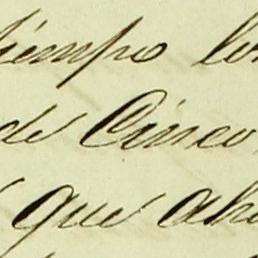 tiempo
de Cinco
que aho